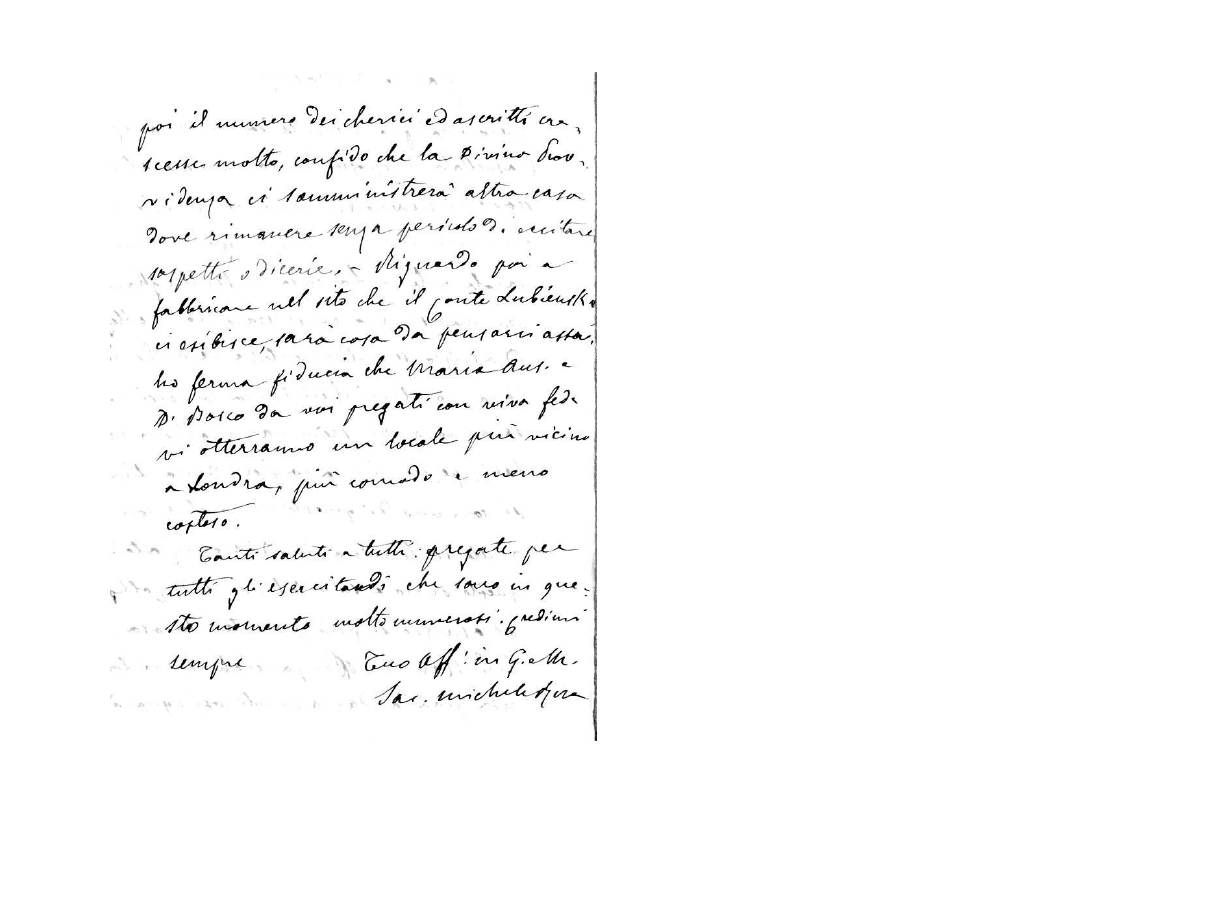 poi il numero dei cherici ed ascritti cre-
scesse molto, confido che la Divina Prov-
videnza ci somministrerà altra casa
dove rimanere senza pericolo di eccitare
sospetti o dicerie. - Riguardo poi a
fabbricare nel sito che il Conte Lubienski
ci esibisce, sarà cosa da pensarci assai,
ho ferma fiducia che Maria Aus. e
D. Bosco da voi pregati con viva fede
vi otterranno un locale più vicino
a Londra, più comodo e meno
costoso.
Tanti saluti a tutti: pregate per
tutti gli esercitandi che sono in que-
sto momento molto numerosi. Credimi
sempre Tuo Aff: in G. e M.
Sac. Michele Rua